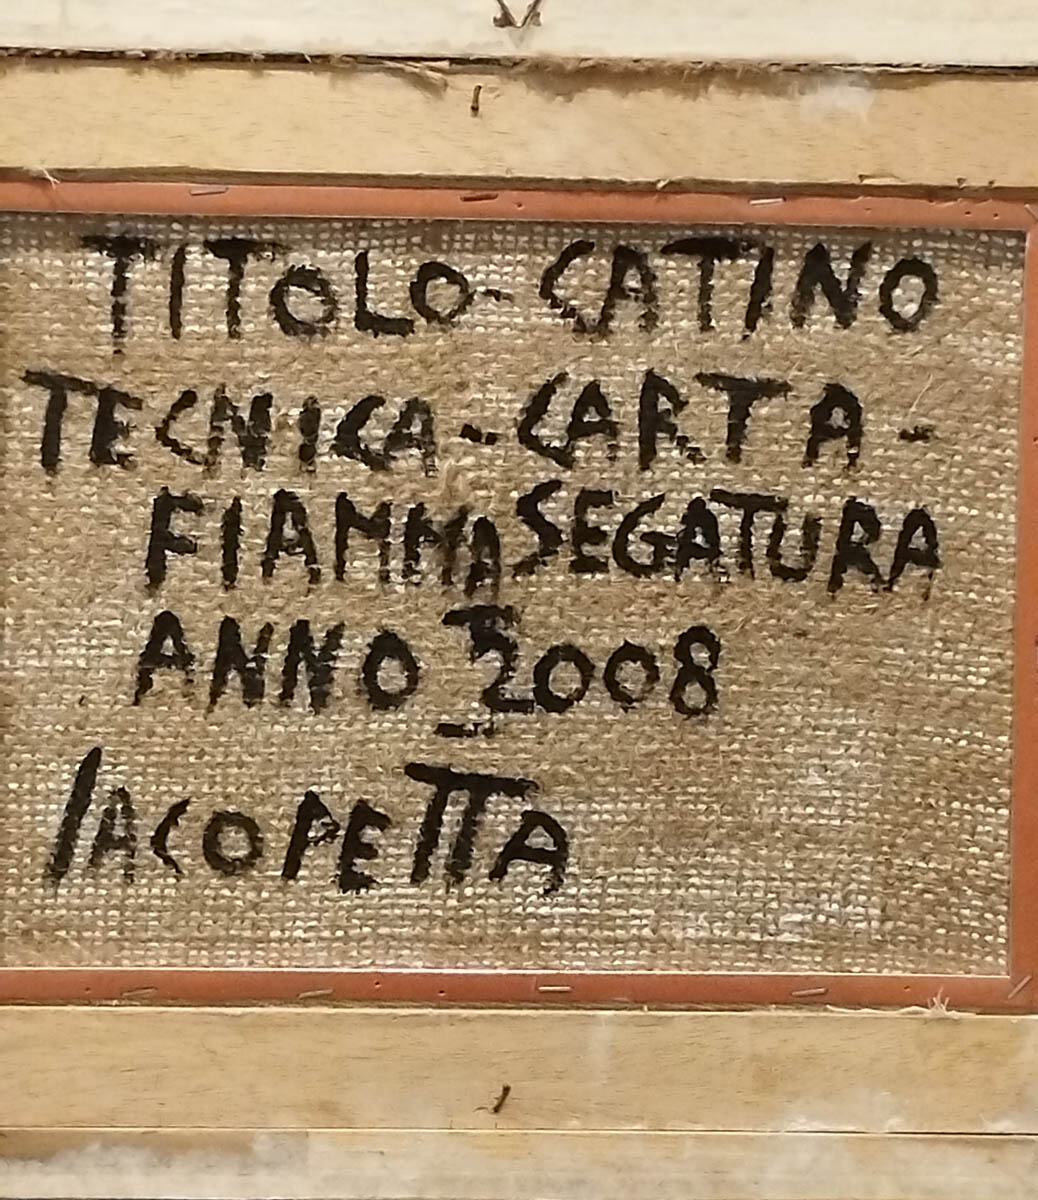 TITOLO - CATINO
TECNICA - CARTA -
FIAMMA SEGATURA
ANNO 2008
IACOPETTA